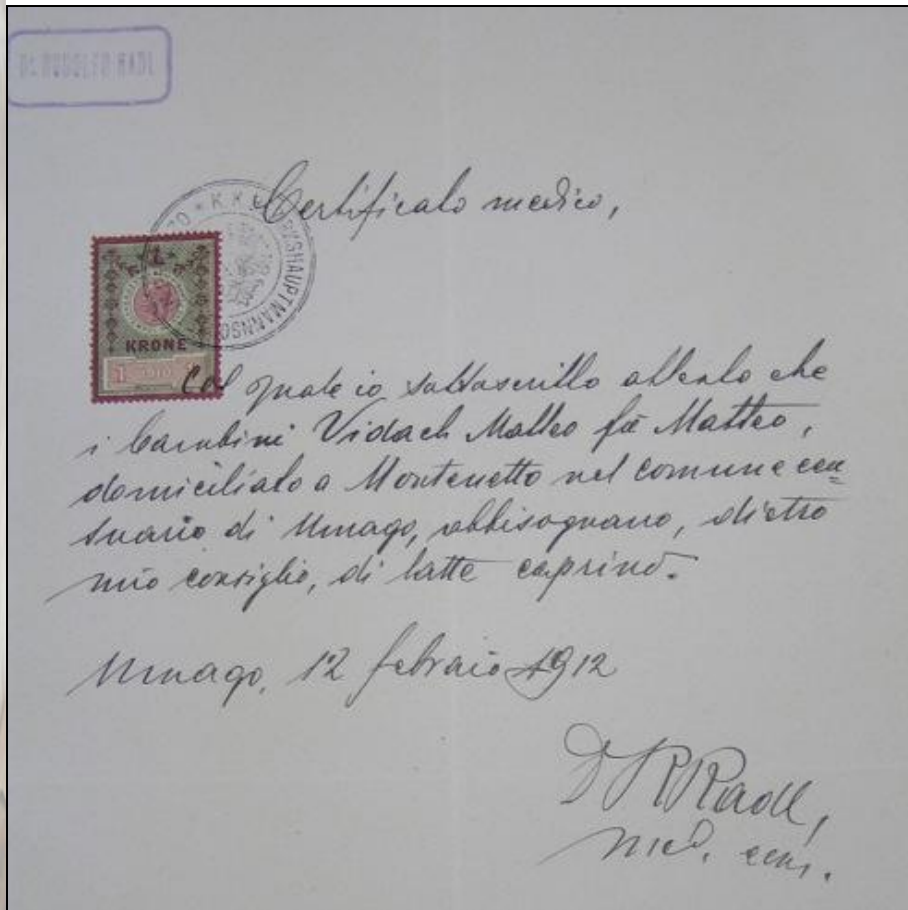 Dr. RODOLFO RADL
Certificato medico,
K.K. BEZIRKSHAUPTMANNSC
1
KRONE
1 1910
Col quale io sottoscritto attesto che
i bambini Vidach Matteo fù Matteo,
domiciliato a Montenetto nel comune cen=
suario di Umago, abbisognano, dietro
mio consiglio, di latte caprino.
Umago, 12 febraio 1912
Dr R Radl,
med.